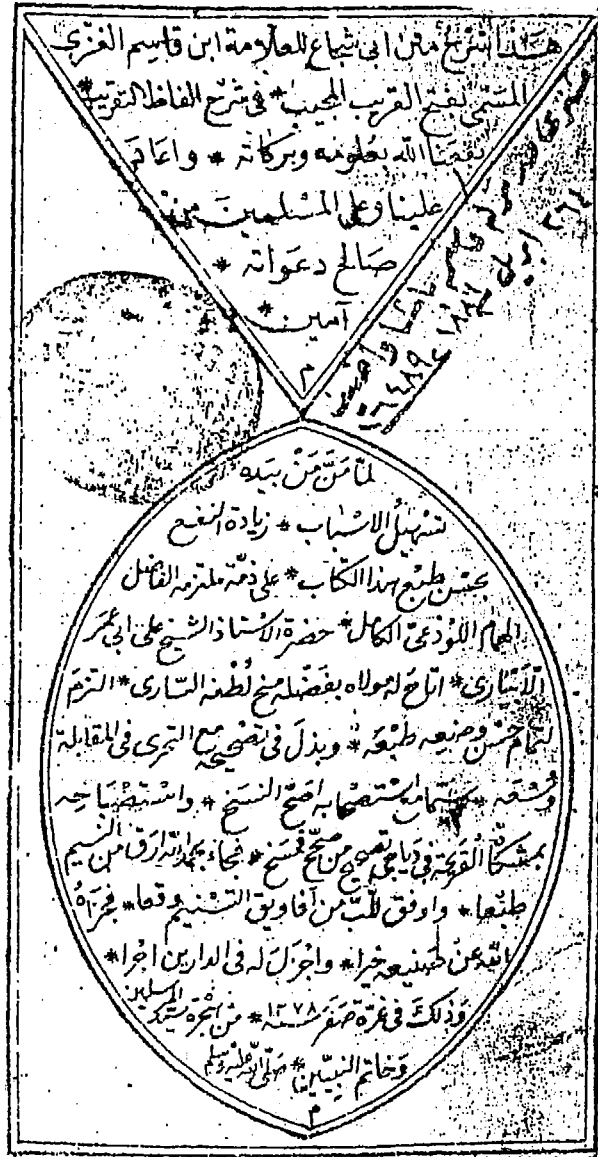 هذا شرح متن ابى شجاع للعلامة ابن قاسم الغزى
المسمى بفتح القريب المجيب * فى شرح الفاظ التقريب *
نفعنا الله بعلومه وبركاته * واعاد
علينا وعلى المسلمين من
صالح دعواته *
آمين *
م
لما من من بيده
تسهيل الاسباب * زيادة النفع
بحسن طبع هذا الكتاب * على ذمة ملتزمه الفاضل
الهمام اللوذعى الكامل * حضرة الاستاذ الشيخ على ابى عمر
الابيارى * اتاح له مولاه بفضله منح لطفه السارى * التزم
لتمام حسن وضعه طبعه * وبذل فى تصحيحه مع التحرى فى المقابلة
وسعه * باستصحابه اصح النسخ * واستصباحه
القريحة فى دياجى تصحيح من صحح فمسخ * فجاء بحمد الله ارق من النسيم
طبعا * واوفق للب من افاويق التسنيم وقعا * فجزاه
الله عن صنيعه خيرا * واجزل له فى الدارين اجرا *
وذلك فى غرة صفر سنة ١٢٧٨ * من هجرة سيد المرسلين
وخاتم النبيين * صلى الله عليه وسلم
م